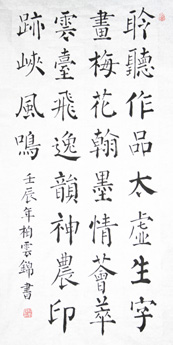 聆聽作品太虛生字
畫梅花翰墨情薈萃
雲臺飛逸韻神農印
跡峽風鳴
壬辰年柏雲錦書